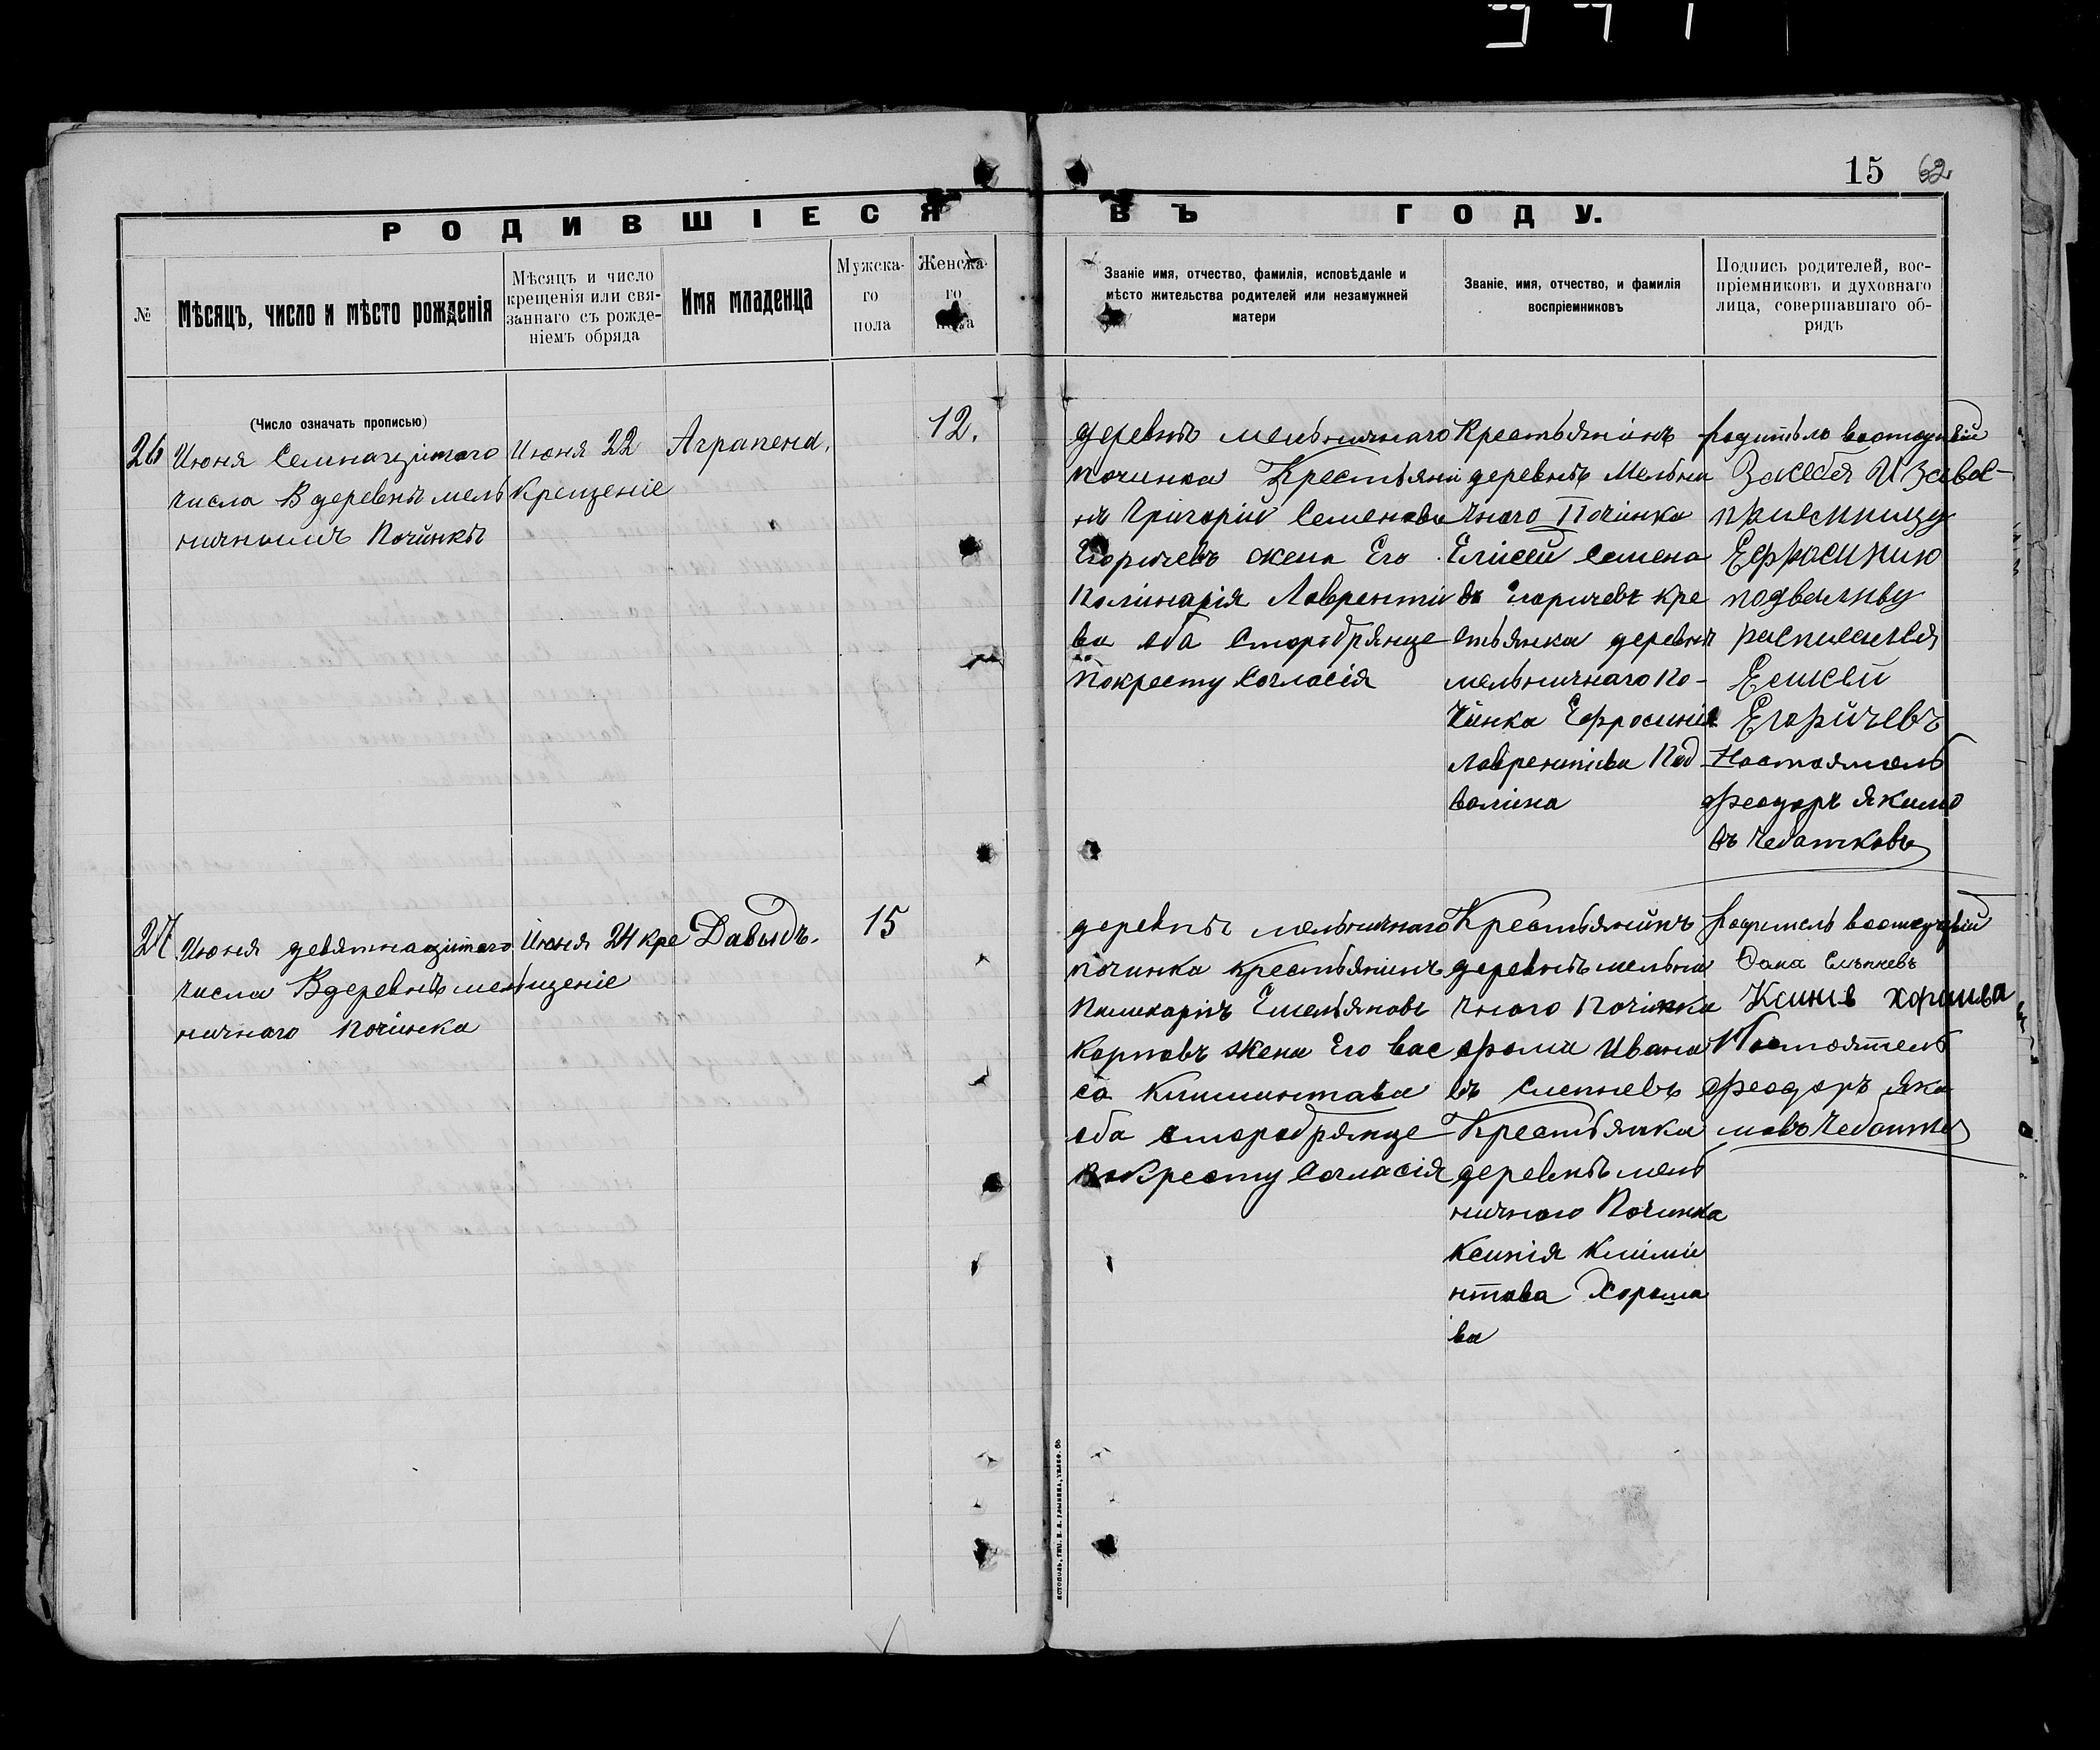 15 62
РОДИВШІЕСЯ ВЪ ГОДУ.
№
Мѣсяцъ, число и мѣсто рожденія
Мѣсяцъ и число
крещенія или свя-
заннаго съ рожде-
ніемъ обряда
Имя младенца
Мужска-
го
пола
Женска-
го
пола
Званіе имя, отчество, фамилія, исповѣданіе и
мѣсто жительства родителей или незамужней
матери
Званіе, имя, отчество, и фамилія
воспріемниковъ
Подпись родителей, вос-
пріемниковъ и духовнаго
лица, совершавшаго об-
рядъ
(Число означать прописью)
26
Июня Семнацітаго
Числа В деревнѣ мель
ничномъ Починкѣ
Июня 22
Крещеніе
Аграпена,
12.
деревнѣ мельничнаго
починка Крестьяни
нъ Григорій Семенови
Егоричевъ жена Его
Полинарія Лавренти
ва оба старобрянце
Покресту Согласія
Крестьянінъ
деревнѣ Мельни
чнаго Починка
Елісей Семено
въ Егоричевъ кре
стьянка деревнѣ
мельничнаго По-
чинка Ефросинія
Лаврентіева Под
валіна
Засебя И Завос-
приемницу
Ефросинию
подваливу
расписался
Елисей
Егоричевъ
Настоятель
Феодоръ Якимо
въ Чебатковъ
27
Июня девятнацітаго
Числа В деревнѣ мель
ничнаго Починка
Июня 24 кре
щеніе
Давыдъ.
15
деревнѣ мельничнаго
починка крестьянинъ
Поликарпъ Емельяновъ
Карповъ жена Его Вас
са Климинтава
оба старобрянце
поКресту Согласія
Крестьянинъ
деревнѣ мельни
чнаго Починка
фома Ивано
въ Слепневъ
Крестьянка
деревнѣ мель
ничнаго Починка
Ксинія Клими
нтава Хороша
ва
Фома Слѣпневъ
Ксинія хорошва
Настоятель
Феодоръ Яки
мовъ Чебатко